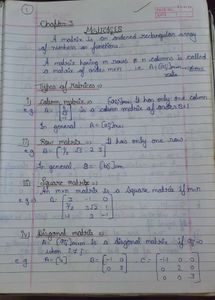 Chapter 3
MATRICES
A matrix is an ordered rectangular array
of numbers or functions.
A matrix having m rows & n columns is called
a matrix of order mxn i.e. A = [aij]mxn
Types of Matrices :-
i) Column matrix :- It has only one column
e.g A = is a column matrix of order
In general A = [aij]mx1
ii) Row matrix :- It has only one row
e.g A =
In general, B = [bij]1xn
iii) Square matrix :-
An mxn matrix is a square matrix if m=n
e.g :- A = 3 -1 0
3/2 3√2 1
4 3 -1
iv) Diagonal matrix :-
A = [aij]mxm is a diagonal matrix if aij=0
when i≠j
e.g A = B = -1 0 C =
0 2 0
0 0 3